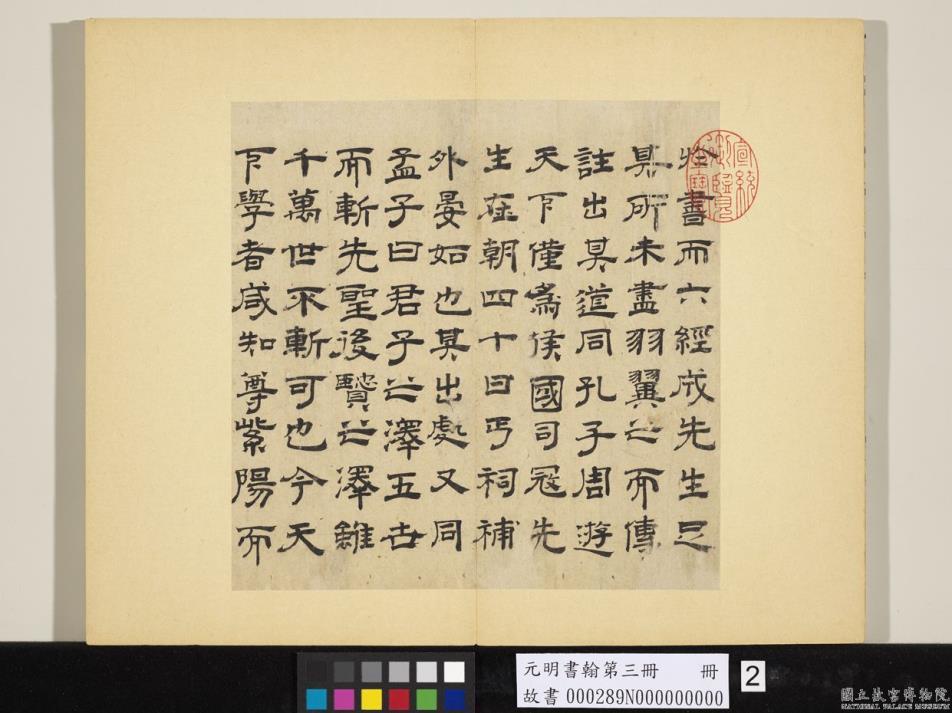 書而六經成先生足
其所未盡羽翼之而傳
註出其道同孔子周遊
天下僅為侯國司寇先
生在朝四十日丐祠補
外晏如也其出處又同
孟子曰君子之澤五世
而斬先聖後賢之澤雖
千萬世不斬可也今天
下學者咸知尊紫陽而
元明書翰第三冊 冊
故書 000289N000000000
2
國立故宮博物院
NATIONAL PALACE MUSEUM